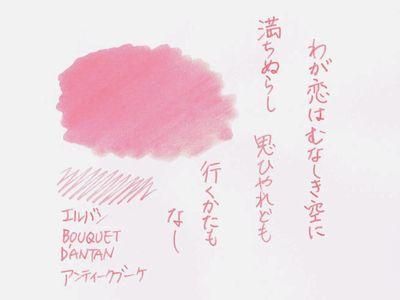 わが恋はむなしき空に
満ちぬらし 思ひやれども
行くかたも
なし
エルバン
BOUQUET
D'ANTAN
アンティークブーケ